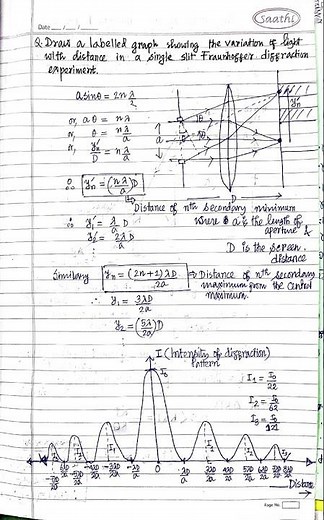 Saathi
Date ___/___/___
Q. Draw a labelled graph showing the variation of light
with distance in a single slit Fraunhoffer diffraction
experiment.
a sinθ = 2n λ/2
or, a θ = nλ
or, θ = nλ/a
or, yn'/D = nλ/a
∴ yn' = (nλ/a)D
Distance of nth secondary minimum
where a is the length of
aperture &
D is the screen
distance
∴ y1' = λ/a D
y2' = 2λ/a D
Similarly yn = (2n+1)λD/2a → Distance of nth secondary
maximum from the central
maximum.
y1 = 3λD/2a
y2 = (5λ/2a)D
I (Intensity of diffraction)
Pattern
I0
I1 = I0/22
I2 = I0/62
I3 = I0/121
I1
I2
0
Distance
Page No.